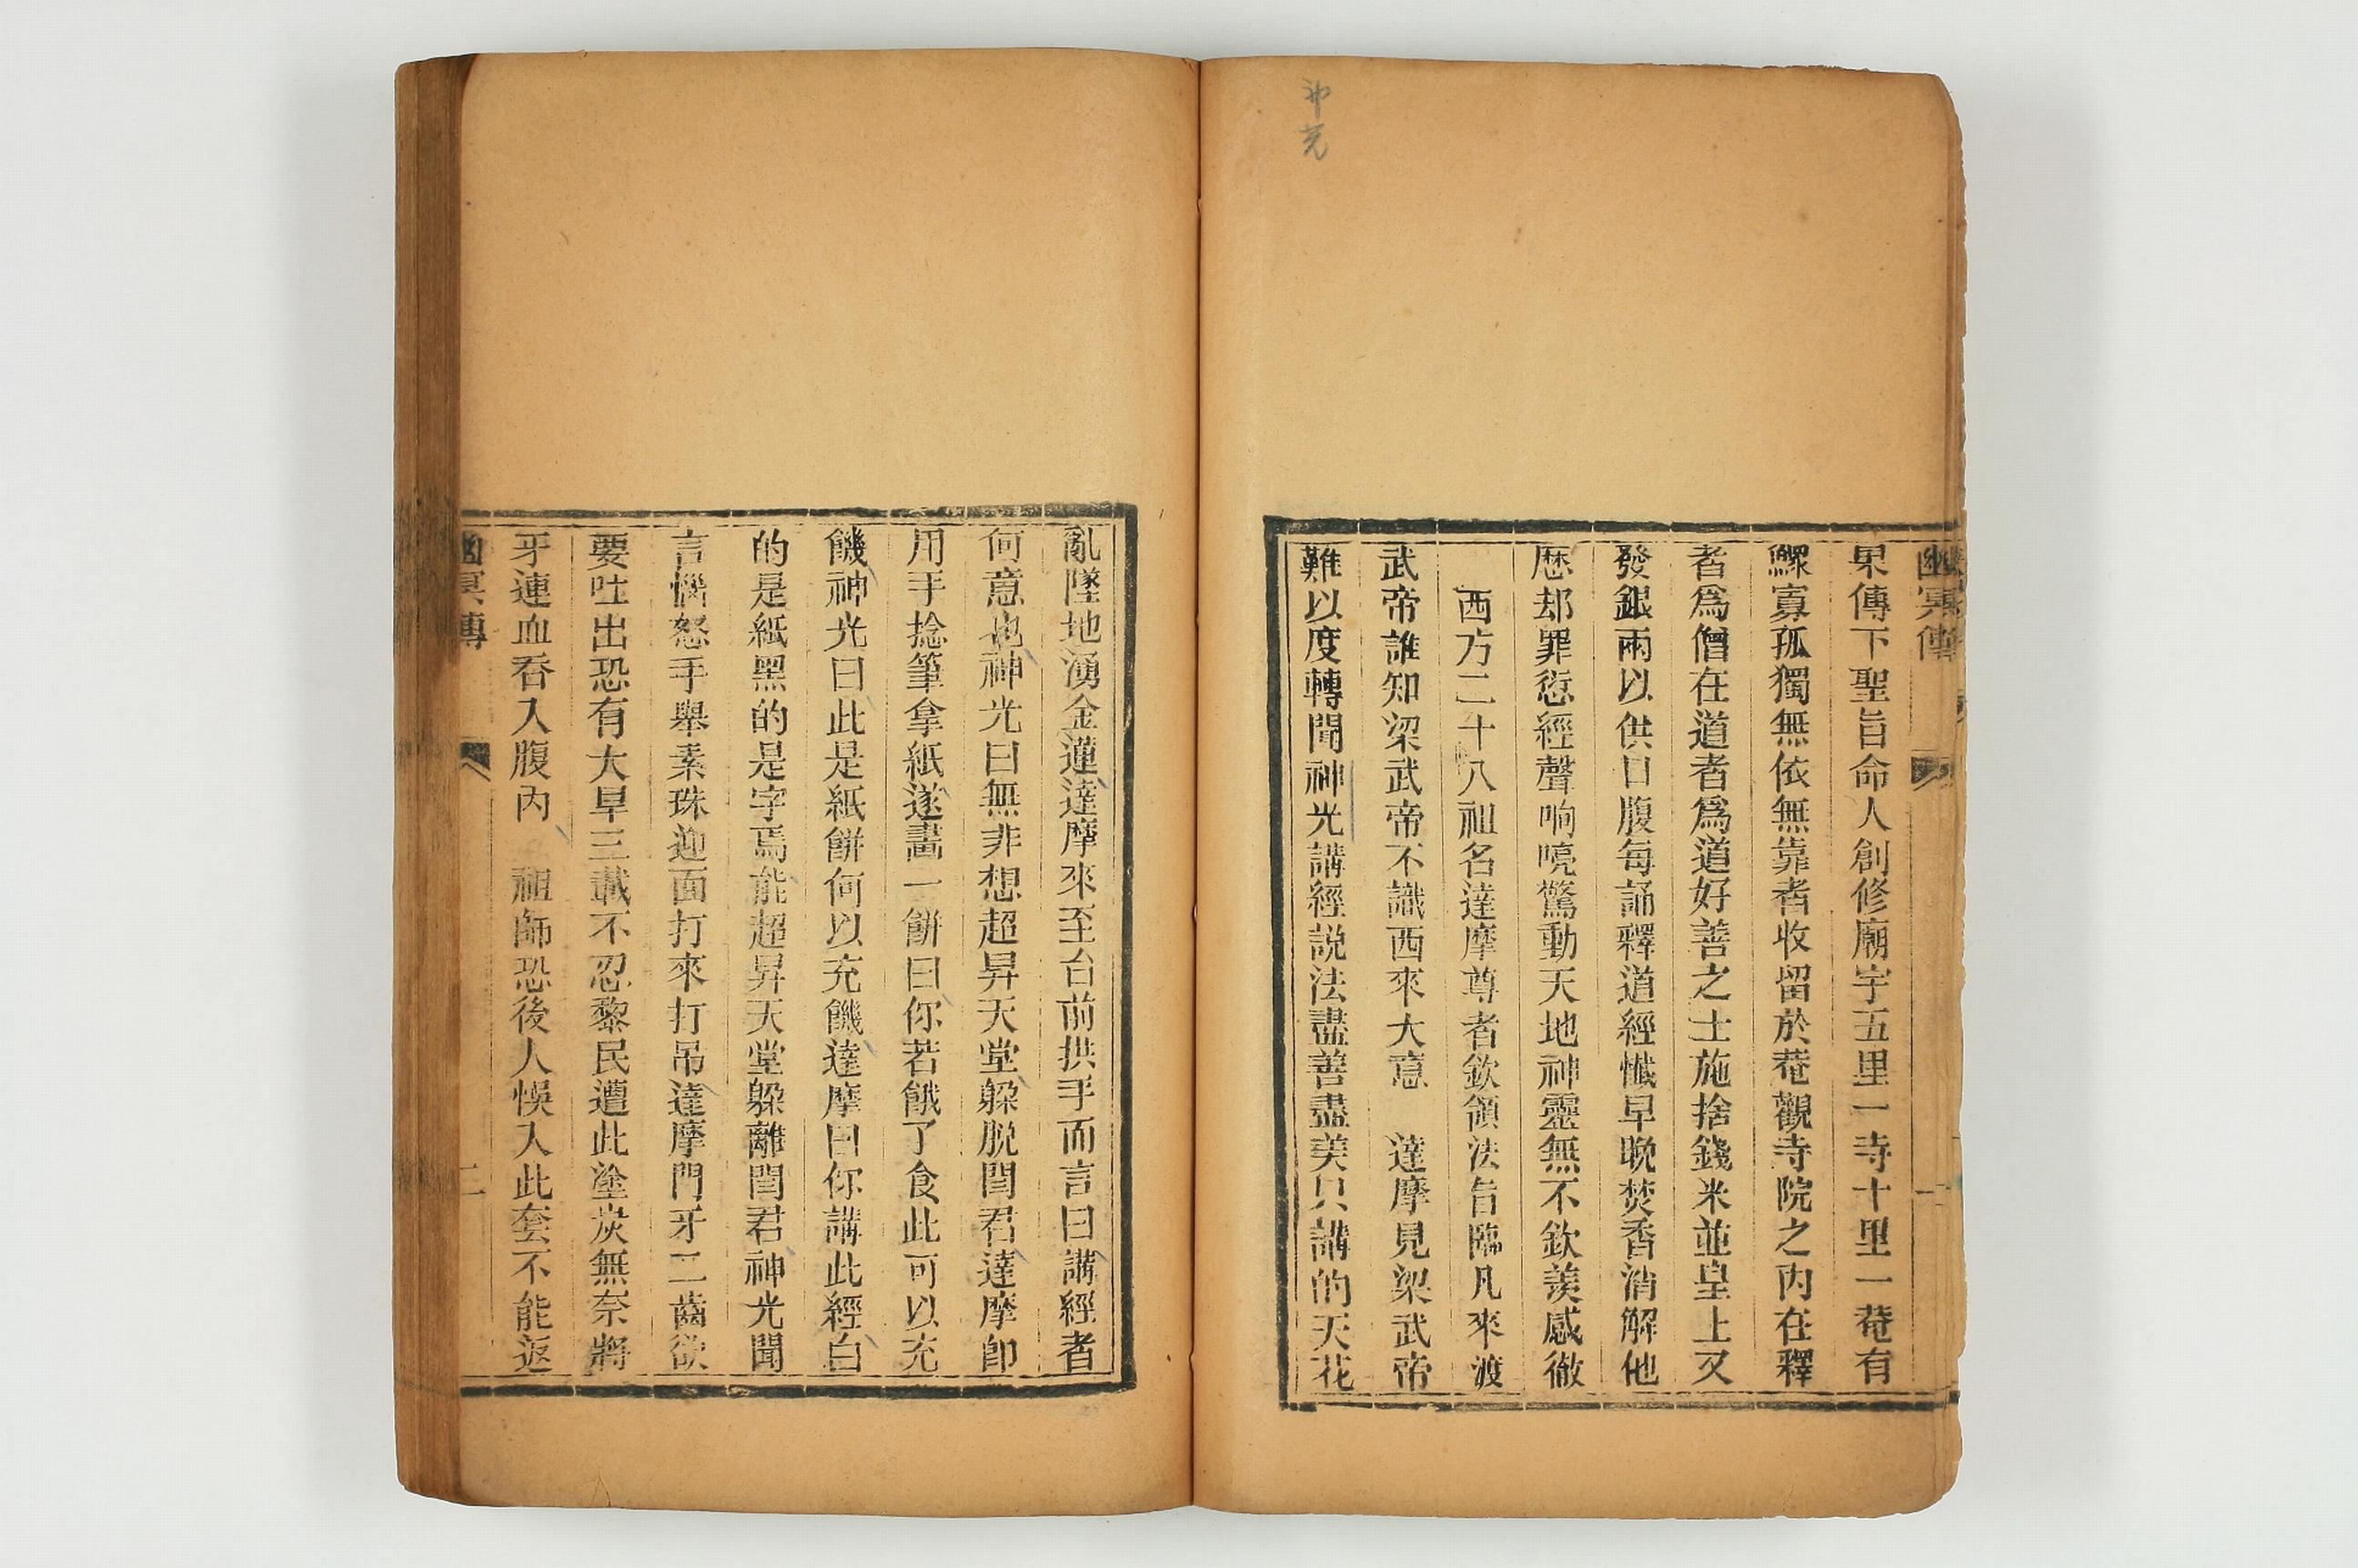 神光
幽冥傳
果傳下聖旨命人創修廟宇五里一寺十里一菴有
鰥寡孤獨無依無靠者收留於菴觀寺院之內在釋
者爲僧在道者爲道好善之士施捨錢米並皇上又
發銀兩以供口腹每誦釋道經懺早晚焚香消解他
歷却罪愆經聲响喨驚動天地神靈無不欽羨感徹
西方二十八祖名達摩尊者欽領法旨臨凡來渡
武帝誰知梁武帝不識西來大意 達摩見梁武帝
難以度轉聞神光講經説法盡善盡美只講的天花
亂墜地湧金蓮達摩來至台前拱手而言曰講經者
何意也神光曰無非想超昇天堂躲脫閻君達摩即
用手捻筆拿紙遂畵一餅曰你若餓了食此可以充
饑神光曰此是紙餅何以充饑達摩曰你講此經白
的是紙黑的是字焉能超昇天堂躲離閻君神光聞
言惱怒手舉素珠迎面打來打吊達摩門牙二齒欲
要吐出恐有大旱三載不忍黎民遭此塗炭無奈將
牙連血吞入腹內 祖師恐後人悞入此套不能返
幽冥傳 二